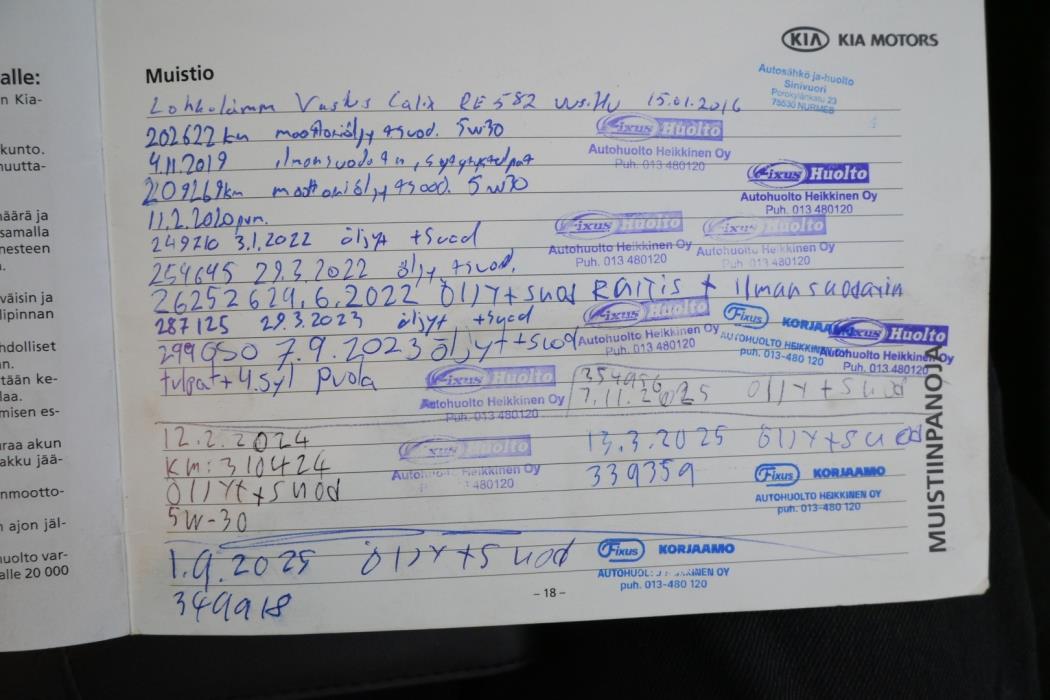 KIA KIA MOTORS
alle:
n Kia-
kunto.
nuutta-
määrä ja
samalla
nesteen
väisin ja
lipinnan
hdolliset
an.
tään ke-
laa.
misen es-
uraa akun
akku jää-
nmootto-
n ajon jäl-
uolto var-
alle 20 000
Muistio
Autosähkö ja-huolto
Sinivuori
Porokylänkatu 23
75530 NURMES
Lohkolämm Vastus Calix RE 582 15.01.2016
202622 km moottoriöljy +suod. 5w30
Fixus Huolto
Autohuolto Heikkinen Oy
Puh. 013 480120
4.11.2019 ilmansuodatin,
209269km moottoriöljy +suod. 5w30
Fixus Huolto
Autohuolto Heikkinen Oy
Puh. 013 480120
11.2.2020 pvm.
249710 3.1.2022 öljyt +suod
Fixus Huolto
Autohuolto Heikkinen Oy
Puh. 013 480120
Fixus Huolto
Autohuolto Heikkinen Oy
Puh. 013 480120
254645 29.3.2022 öljy +suod.
262526 29.6.2022 ÖljYt+suod Raitis + Ilmansuodatin
287125 29.3.2023 öljyt +suod
Fixus Huolto
Autohuolto Heikkinen Oy
Puh. 013 480120
Fixus KORJAAMO
AUTOHUOLTO HEIKKINEN
puh. 013-480 120
Fixus Huolto
Autohuolto Heikkinen Oy
Puh. 013 480120
299950 7.9.2023 öljyt+suod
tulpat+4.syl puola
Fixus Huolto
Autohuolto Heikkinen Oy
Puh. 013 480120
354996
7.11.2025 ÖljYt+suod
12.2.2024
Km: 310424
Öljyt+suod
5W-30
Fixus Huolto
Heikkinen Oy
480120
13.3.2025 ÖljYt+suod
339359
Fixus KORJAAMO
AUTOHUOLTO HEIKKINEN OY
puh. 013-480 120
1.9.2025 ÖljYt+suod
349918
Fixus KORJAAMO
puh. 013-480 120
MUISTIINPANOJA
– 18 –